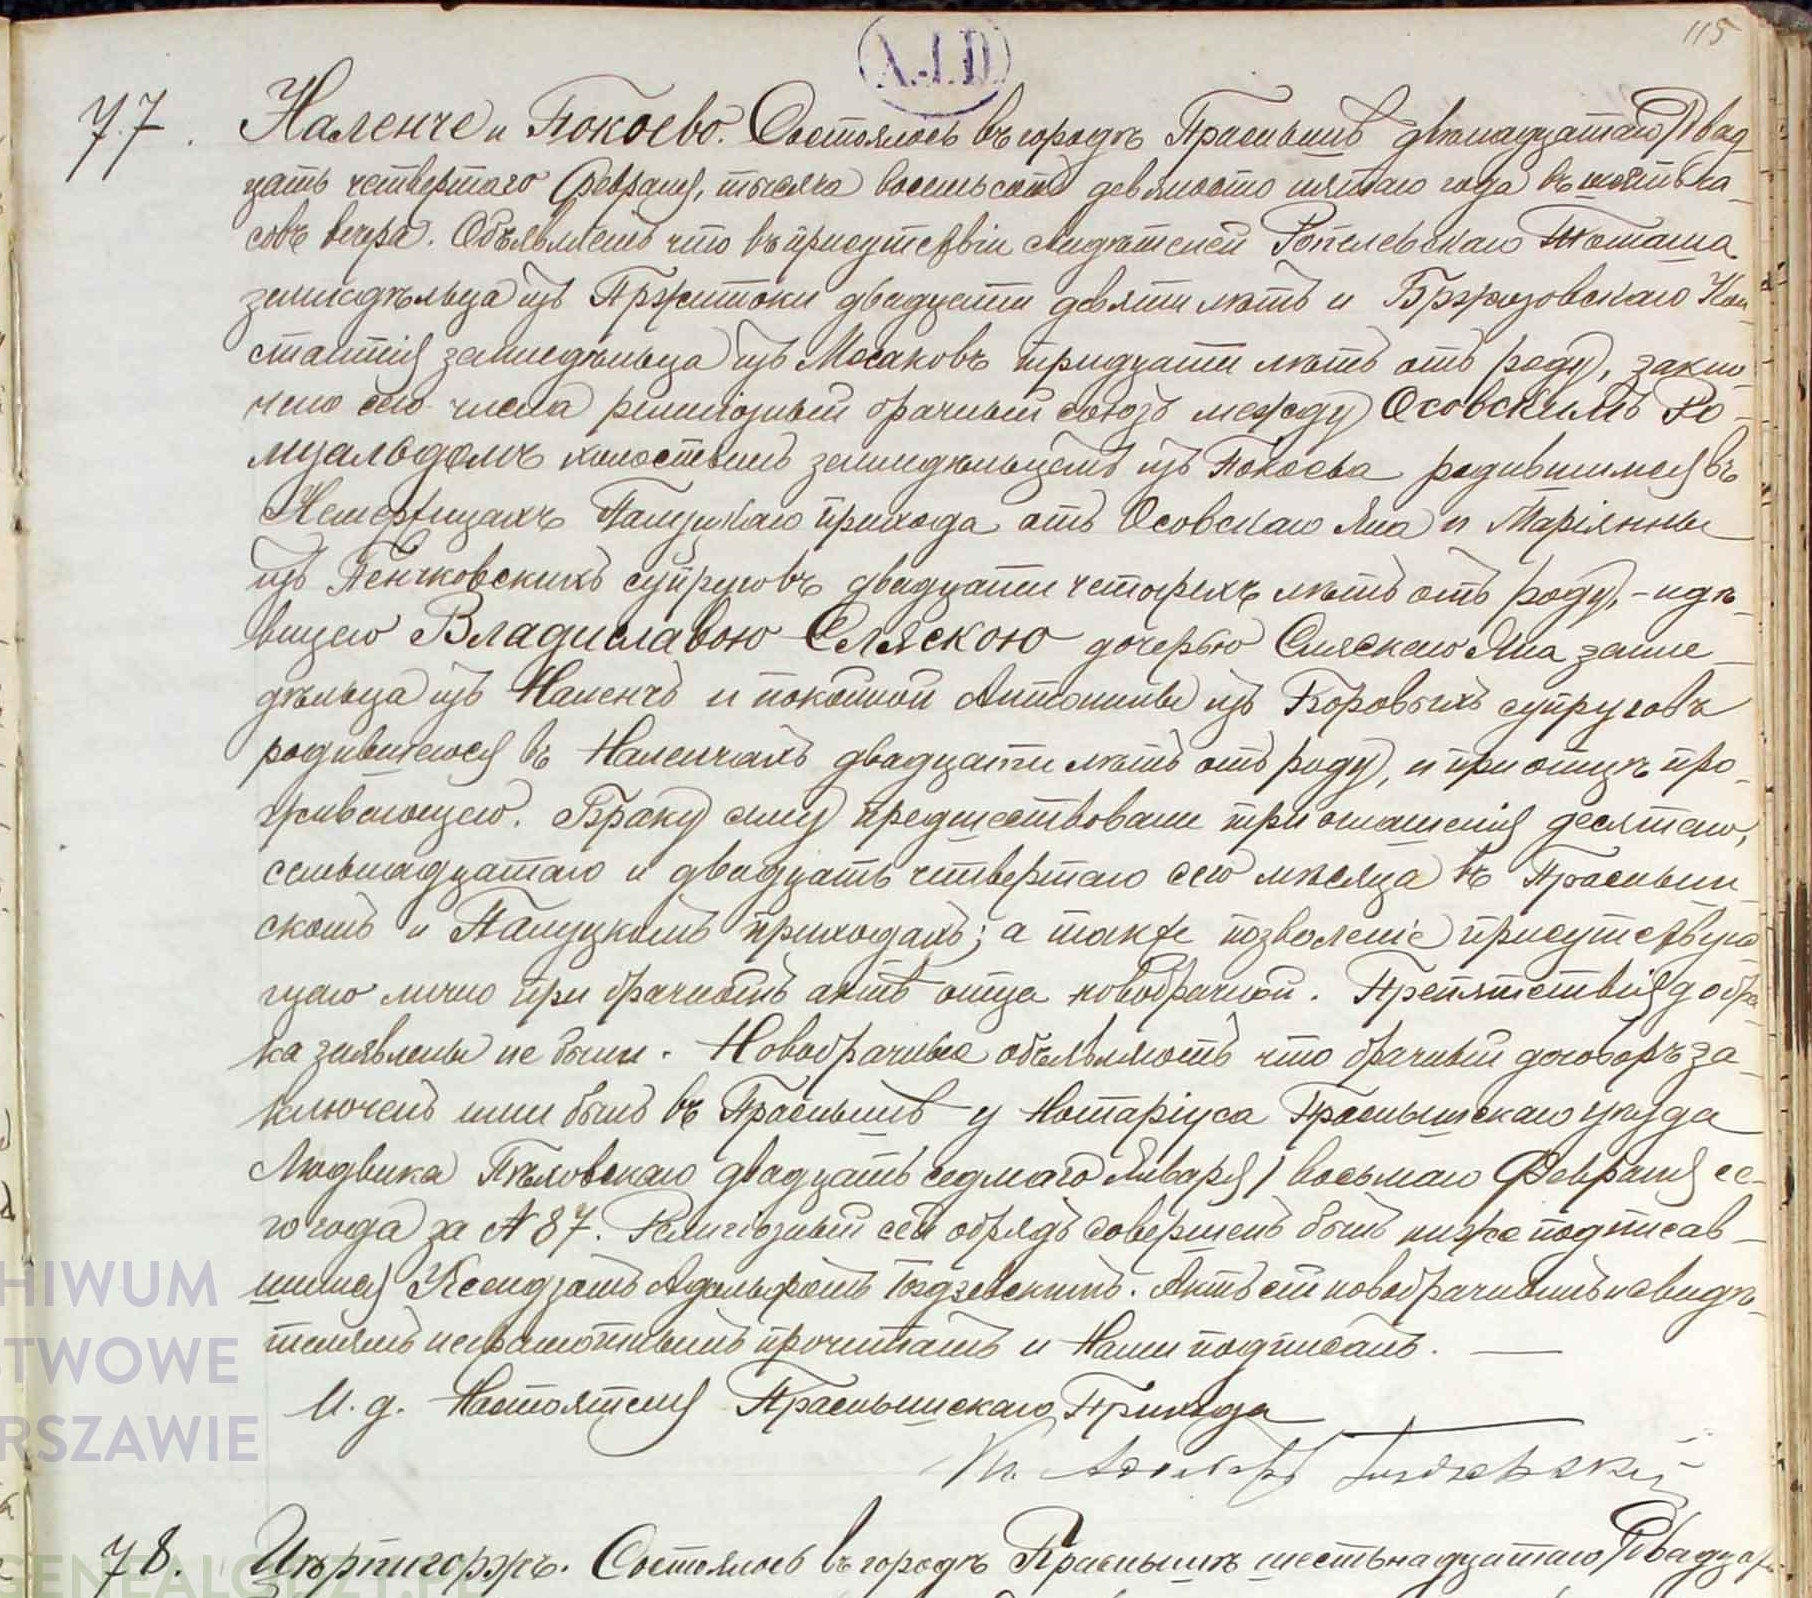 115
А.І.D.
77. Наленче и Покоево. Состоялось въ городѣ Праснышѣ двѣнадцатаго/двад-
цать четвертаго Февраля, тысяча восемьсотъ девяносто пятаго года въ шесть ча-
совъ вечера. Объявляемъ что въ присутствіи свидѣтелей Томаша
земледѣльца изъ Пржитоки двадцати девяти лѣтъ и Бржозовскаго Кон-
стантія земледѣльца изъ Мосаковъ тридцати лѣтъ отъ роду, заклю-
чено сего числа религіозный брачный союзъ между Осовскимъ Ро-
муальдомъ холостымъ земледѣльцемъ изъ Покоева родившимся въ
Немержицахъ Палуцкаго прихода отъ Осовскаго Яна и Маріянны
изъ Пенчковскихъ супруговъ двадцати четырехъ лѣтъ отъ роду, - и дѣ-
вицею Владиславою Сляскою дочерью Сляскаго Яна земле-
дѣльца изъ Наленчъ и покойной Антонины изъ Боровыхъ супруговъ
родившеюся въ Наленчахъ двадцати лѣтъ отъ роду, и при отцѣ про-
живающею. Браку сему предшествовали три оглашенія десятаго,
семьнадцатаго и двадцать четвертаго сего мѣсяца въ Праснышс-
скомъ и Палуцкомъ приходахъ; а также позволеніе присутствую-
щаго лично при брачномъ актѣ отца новобрачной. Препятствія до бра-
ка заявлены не были. Новобрачные объявляютъ что брачный договоръ за-
ключенъ ими былъ въ Праснышѣ у Нотаріуса Праснышскаго уѣзда
Людвика двадцать седмаго Января/восьмаго Февраля се-
го года за № 87. Религіозный сей обрядъ совершенъ былъ ниже подписав-
шимся Ксендзомъ Адольфомъ Годзевскимъ. Актъ сей новобрачнымъ и свидѣ-
телямъ неграмотнымъ прочитанъ и Нами подписанъ. —
И. д. Настоятеля Праснышскаго Прихода
Кс. Адольфъ Годзевскій
78. Цѣрпигоржъ. Состоялось въ городѣ Праснышѣ шестьнадцатаго/двадцать
HIWUM
STWOWE
RSZAWIE
GENEALODZY.PL